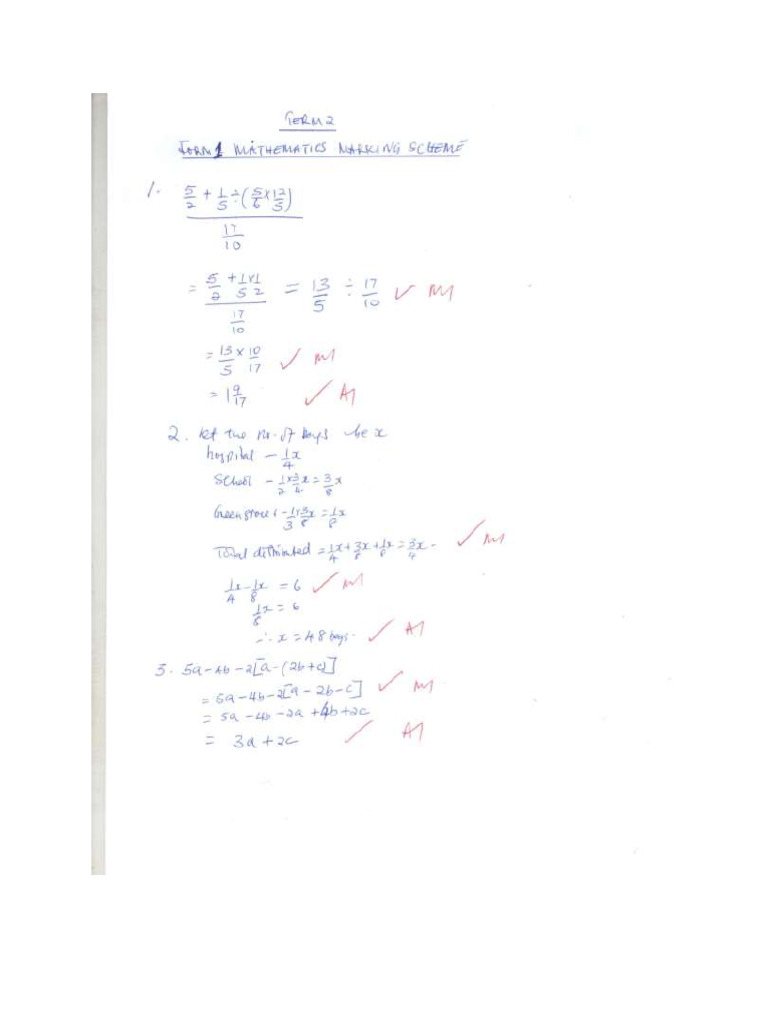 TERM 2
FORM 1 MATHEMATICS MARKING SCHEME
1. 5/2 + 1/5 ÷ (5/6 × 12/5)
17/10
= 5/2 + 1/5 × 1/2 = 13/5 ÷ 17/10 ✓ M1
17/10
= 13/5 × 10/17 ✓ M1
= 1 9/17 ✓ A1
2. let the no. of bags be x
hospital – 1/4 x
School – 1/2 × 3/4 x = 3/8 x
Green grocer – 1/3 × 3/8 x = 1/8 x
Total distributed = 1/4 x + 3/8 x + 1/8 x = 3/4 x – ✓ M1
1/4 x – 1/8 x = 6 ✓ M1
1/8 x = 6
∴ x = 48 bags. ✓ A1
3. 5a – 4b – 2[a – (2b + c)]
= 5a – 4b – 2[a – 2b – c] ✓ M1
= 5a – 4b – 2a + 4b + 2c
= 3a + 2c ✓ A1